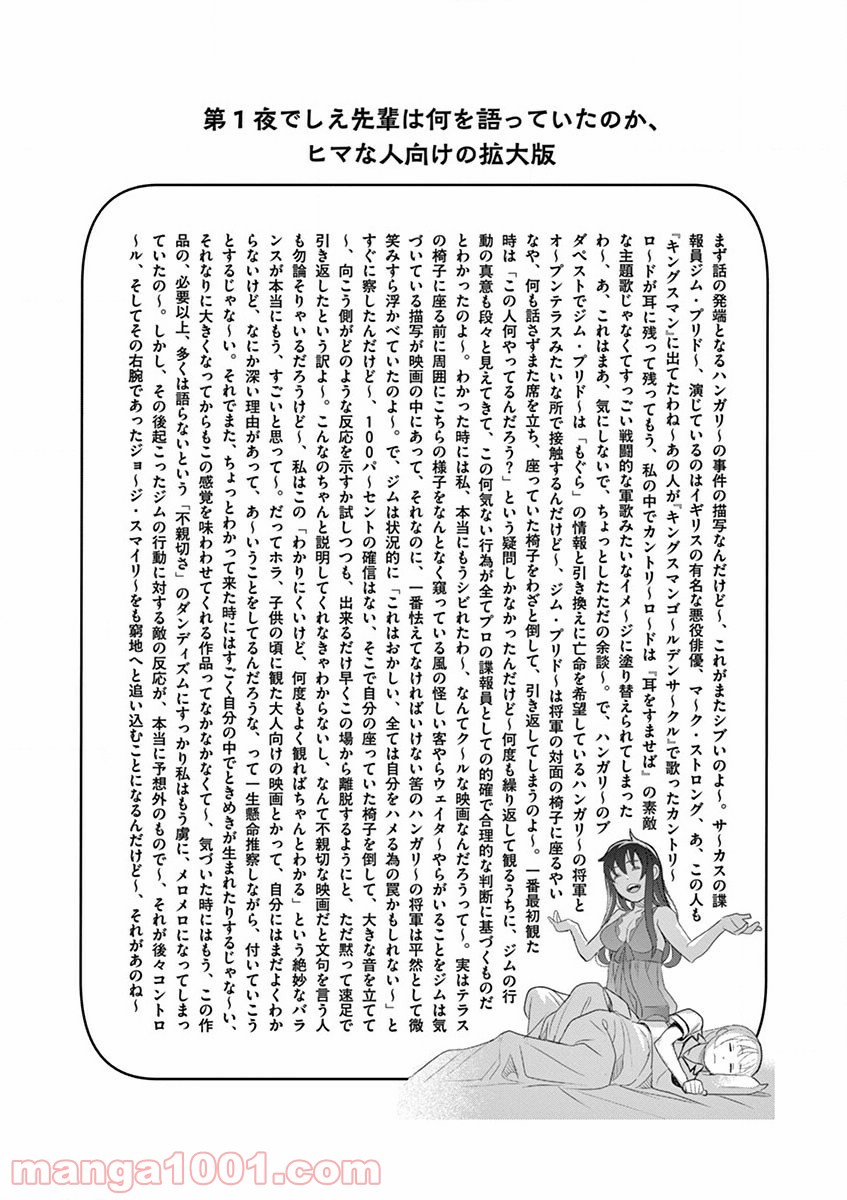 第1夜でしえ先輩は何を語っていたのか、
ヒマな人向けの拡大版
まず話の発端となるハンガリ〜の事件の描写なんだけど〜、これがまたシブいのよ〜。サ〜カスの諜
報員ジム・プリド〜、演じているのはイギリスの有名な悪役俳優、マ〜ク・ストロング、あ、この人も
『キングスマン』に出てたわね〜あの人が『キングスマンゴ〜ルデンサ〜クル』で歌ったカントリ〜
ロ〜ドが耳に残って残ってもう、私の中でカントリ〜ロ〜ドは『耳をすませば』の素敵
な主題歌じゃなくてすっごい戦闘的な軍歌みたいなイメ〜ジに塗り替えられてしまった
わ〜、あ、これはまあ、気にしないで、ちょっとしたただの余談〜。で、ハンガリ〜のブ
ダペストでジム・プリド〜は「もぐら」の情報と引き換えに亡命を希望しているハンガリ〜の将軍と
オ〜プンテラスみたいな所で接触するんだけど〜、ジム・プリド〜は将軍の対面の椅子に座るやい
なや、何も話さずまた席を立ち、座っていた椅子をわざと倒して、引き返してしまうのよ〜。一番最初観た
時は「この人何やってるんだろう？」という疑問しかなかったんだけど〜何度も繰り返して観るうちに、ジムの行
動の真意も段々と見えてきて、この何気ない行為が全てプロの諜報員としての的確で合理的な判断に基づくものだ
とわかったのよ〜。わかった時には私、本当にもうシビれたわ〜、なんてク〜ルな映画なんだろうって〜。実はテラス
の椅子に座る前に周囲にこちらの様子をなんとなく窺っている風の怪しい客やらウェイタ〜やらがいることをジムは気
づいている描写が映画の中にあって、それなのに、一番怯えてなければいけない筈のハンガリ〜の将軍は平然として微
笑みすら浮かべていたのよ〜。で、ジムは状況的に「これはおかしい、全ては自分をハメる為の罠かもしれない〜」と
すぐに察したんだけど〜、100パ〜セントの確信はない、そこで自分の座っていた椅子を倒して、大きな音を立てて
〜、向こう側がどのような反応を示すか試しつつも、出来るだけ早くこの場から離脱するようにと、ただ黙って速足で
引き返したという訳よ〜。こんなのちゃんと説明してくれなきゃわからないし、なんて不親切な映画だと文句を言う人
も勿論そりゃいるだろうけど〜、私はこの「わかりにくいけど、何度もよく観ればちゃんとわかる」という絶妙なバラ
ンスが本当にもう、すごいと思って〜。だってホラ、子供の頃に観た大人向けの映画とかって、自分にはまだよくわか
らないけど、なにか深い理由があって、あ〜いうことをしてるんだろうな、って一生懸命推察しながら、付いていこう
とするじゃな〜い。それでまた、ちょっとわかって来た時にはすごく自分の中でときめきが生まれたりするじゃな〜い、
それなりに大きくなってからもこの感覚を味わわせてくれる作品ってなかなかなくて〜、気づいた時にはもう、この作
品の、必要以上、多くは語らないという「不親切さ」のダンディズムにすっかり私はもう虜に、メロメロになってしまっ
ていたの〜。しかし、その後起こったジムの行動に対する敵の反応が、本当に予想外のもので〜、それが後々コントロ
〜ル、そしてその右腕であったジョ〜ジ・スマイリ〜をも窮地へと追い込むことになるんだけど〜、それがあのね〜
manga1001.com